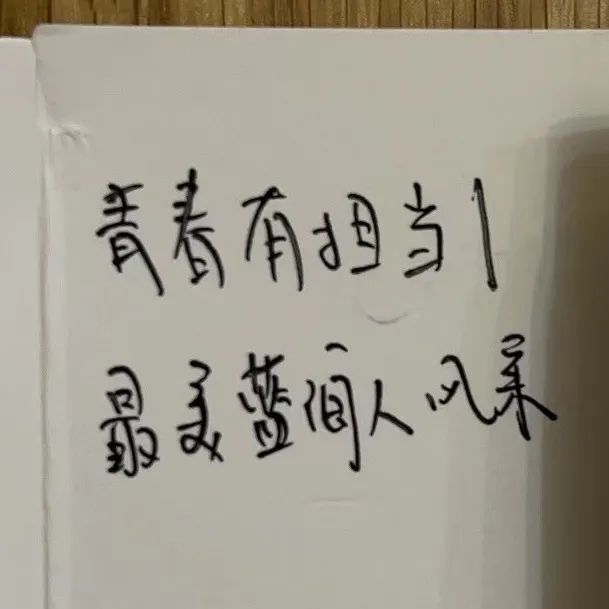 青春有担当！
最美蓝润人风采